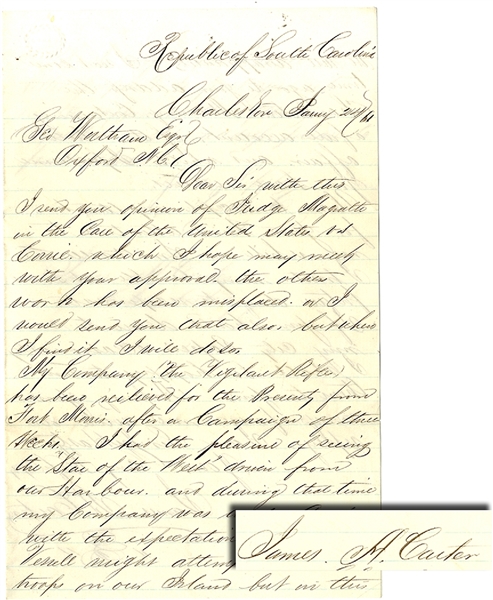 Republic of South Carolina
Charleston Jany 24/61
Geo Wortham Esqr
Oxford N.C.
Dear Sir with this
I send you opinion of Judge Magrath
in the Case of the United States vs
Corrie. which I hope may meet
with your approval. the other
work has been misplaced. or I
would send you that also. but when
I find it I will do so.
My Company "the Vigilant Rifles"
has been relieved for the Present, from
Fort Morris. after a Campaign of three
Weeks. I had the pleasure of seeing
the "Star of the West" driven from
our Harbour. and during that time
my Company was
with the expectation
Vessell might attem
troops on our Island but in this
James. A, Carter